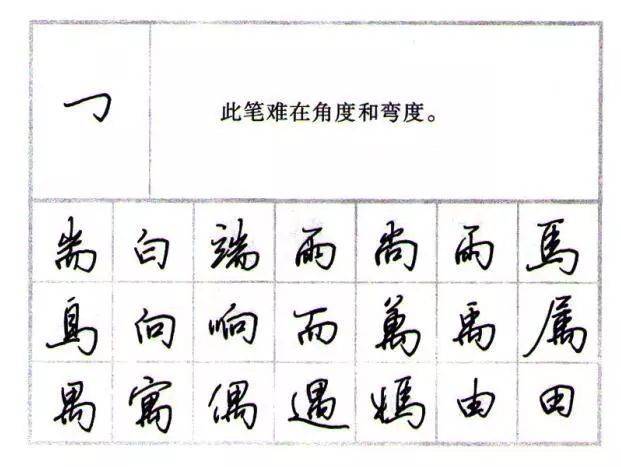 ㇆ 此笔难在角度和弯度。
耑 白 端 两 尚 雨 馬
向 响 而 萬 禹 属
禺 寓 偶 遇 媽 由 田